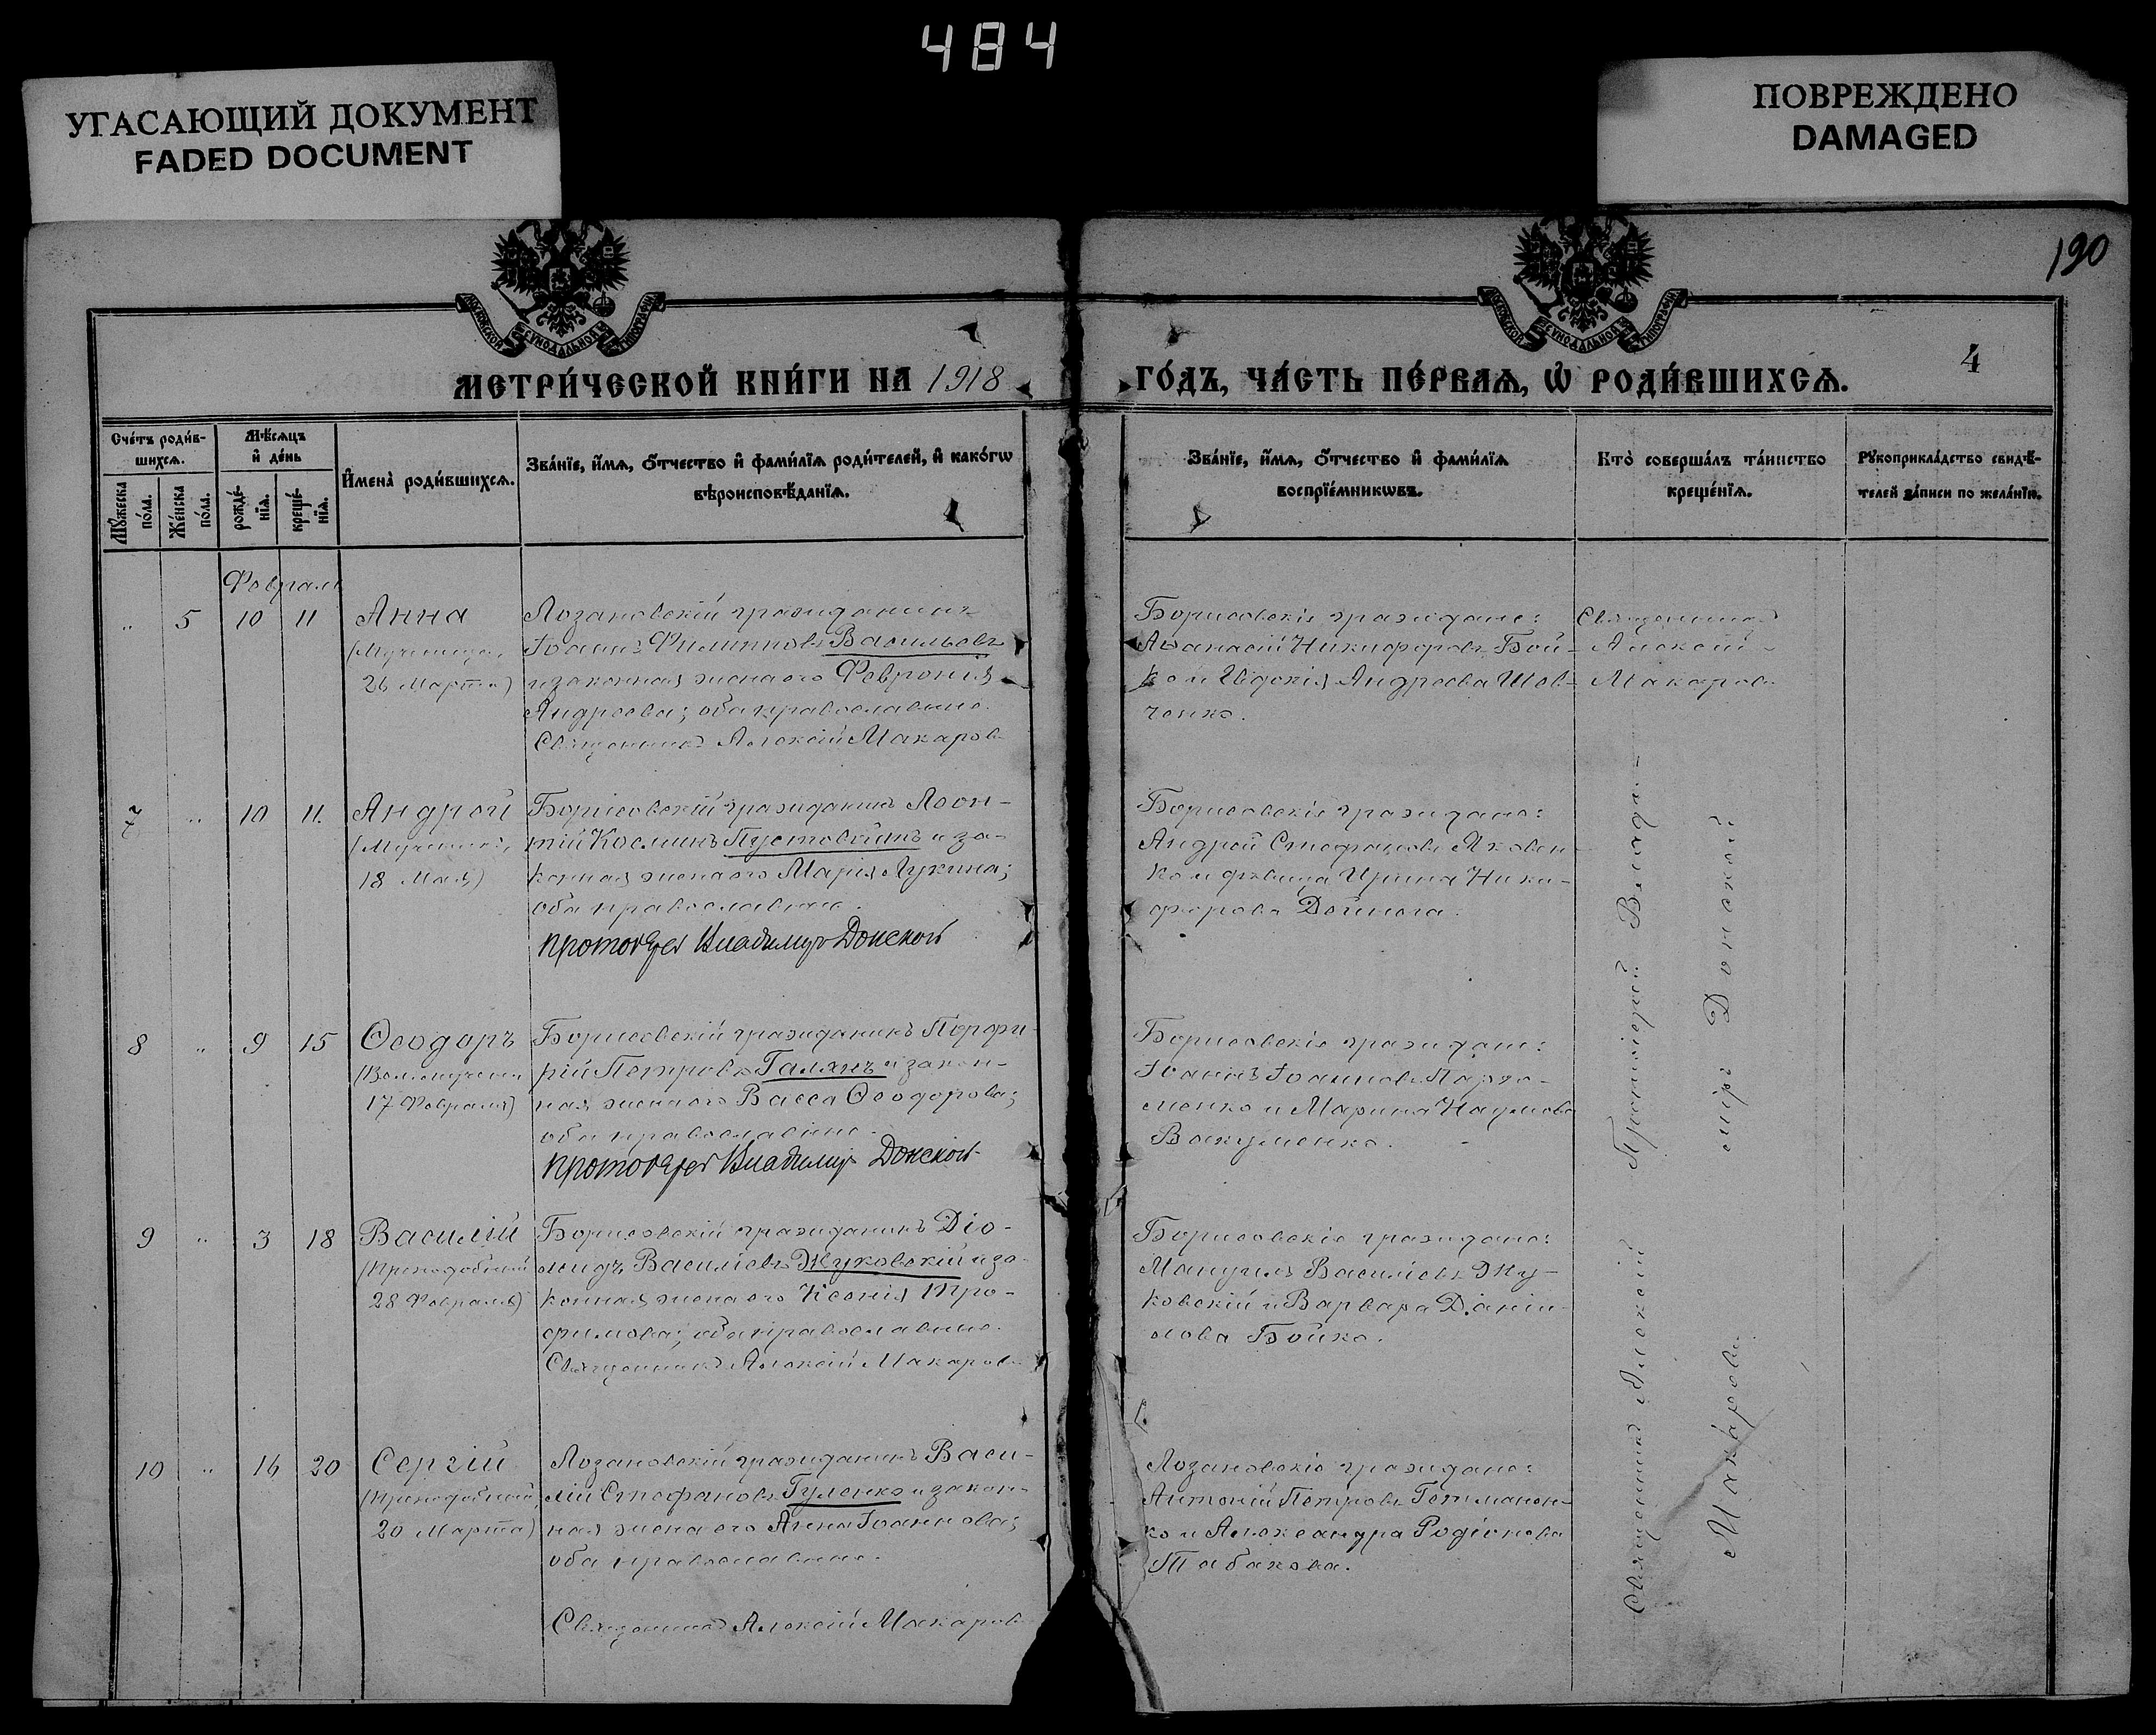 484
УГАСАЮЩИЙ ДОКУМЕНТ
FADED DOCUMENT
ПОВРЕЖДЕНО
DAMAGED
190
МЕТРИ́ЧЕСКОЙ КНИ́ГИ НА 1918 ГО́ДЪ, ЧА́СТЬ ПЕ́РВАѦ, Ѡ҆ РОДИ́ВШИХСѦ.
4
Сче́тъ роди́в-
шихсѧ.
Мѣ́сѧцъ
и҆ де́нь
Мꙋ́жеска
по́ла.
Же́нска
по́ла.
рожде́-
нїѧ.
креще́-
нїѧ.
И҆мена̀ роди́вшихсѧ.
Зва́нїе, и҆́мѧ, ѻ҆́тчество и҆ фами́лїѧ роди́телей, и҆ како́гѡ
вѣроисповѣ́данїѧ.
Зва́нїе, и҆́мѧ, ѻ҆́тчество и҆ фами́лїѧ
воспрїе́мникѡвъ.
Кто̀ соверша́лъ та́инство
креще́нїѧ.
Рꙋкоприкла́дство свидѣ́-
телей за́писи по жела́нїю.
Февраль
" 5 10 11
Анна
(Мученица,
26 Марта)
Лозановскій гражданинъ
Іоаннъ Филипповъ Васильевъ
и законная жена его Февронія
Андреева; оба православные.
Священникъ Алексій Макаровъ
Борисовскіе граждане:
Аѳанасій Никифоровъ Бой-
ко и Евдокія Андреева Шев-
ченко.
Священникъ
Алексій
Макаровъ
7 " 10 11.
Андрей
(Мученикъ,
18 Мая)
Борисовскій гражданинъ Леон-
тій Косминъ Пустовитъ и за-
конная жена его Марія Лукина;
оба православные.
Протоіерей Владимиръ Донской
Борисовскіе граждане:
Андрей Стефановъ Яковен-
ко и девица Ирина Ники-
форова
8 " 9 15
Ѳеодоръ
17 Февраля)
Борисовскій гражданинъ Порфи-
рій Петровъ Галянъ и закон-
ная жена его Васса Ѳеодорова;
оба православные.
Протоіерей Владимиръ Донской
Борисовскіе граждане:
Іоаннъ Іоанновъ Пархо-
менко и Марина Наумова
Вакуменко.
Протоіерей Влади-
міръ Донской
9 " 3 18
Василій
(Преподобный
28 Февраля)
Борисовскій гражданинъ Діо-
мидъ Василіевъ Жуковскій и за-
конная жена его Ксенія Тро-
фимова; оба православные.
Священникъ Алексій Макаровъ
Борисовскіе граждане:
Мануилъ Василіевъ Жу-
ковскій и Варвара Даніи-
лова Бойко.
10 " 16 20
Сергій
(Преподобный
20 Марта)
Лозановскій гражданинъ Васи-
лій Стефановъ Гуленко и закон-
ная жена его Анна Іоаннова;
оба православные.
Священникъ Алексій Макаровъ
Лозановскіе граждане:
Антоній Петровъ Гетманен-
ко и Александра Родіонова
Табакова.
Священникъ Алексій
Макаровъ